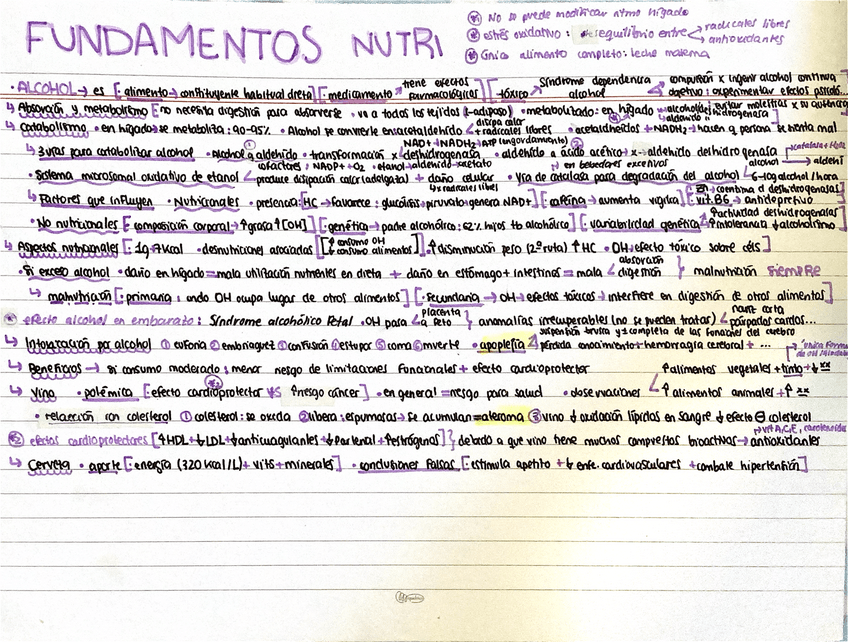 FUNDAMENTOS NUTRI
No se puede modificar ritmo hígado
estrés oxidativo: desequilibrio entre radicales libres antioxidantes
Único alimento completo: leche materna
• ALCOHOL → es [• alimento → constituyente habitual dieta] [• medicamento → tiene efectos farmacológicos] [• tóxico Síndrome dependencia alcohol compulsión x ingerir alcohol continua objetivo: experimentar efectos psicoló...
↳ Absorción y metabolismo [• no necesita digestión para absorverse • va a todos los tejidos (-adiposo) • metabolizado: en hígado
↳ Catabolismo • en hígado se metaboliza: 90-95% • Alcohol se convierte en acetaldehído + radicales libres • acetaldeídos + NADH2 → hacen q persona se sienta mal
↳ 3 vías para catabolizar alcohol • Alcohol a aldehído • transformación x deshidrogenasa • aldehído a ácido acético • x → aldehído deshidrogenasa
• Sistema microsomal oxidativo de etanol cofactores: NADP+ + O2 • etanol → aldehído → acetato produce disipación calor (adelgaza) + daño celular x radicales libres • Vía de catalasa para degradación del alcohol 6-10g alcohol/hora
↳ Factores que influyen • Nutricionales • presencia: HC → favorece: glucólisis → piruvato genera NAD+] [cafeína → aumenta vigilia] vit. B6 → antidepresivo
• No nutricionales [composición corporal → ↑grasa ↑[OH] [genética → padre alcohólico: 62% hijos tb alcohólico] [variabilidad genética ↑actividad deshidrogenasas ↑intolerancia ↓alcoholismo
↳ Aspectos nutricionales [• 1g 7Kcal • desnutriciones asociadas [↑ consumo OH ↓ consumo alimentos] • ↑disminución peso (2ª ruta) ↑ HC • OH: efecto tóxico sobre céls]
• Si exceso alcohol • daño en hígado = mala utilización nutrientes en dieta + daño en estómago + intestinos = mala absorción digestión } malnutrición SIEMPRE
↳ malnutrición [• primaria: cndo OH ocupa lugar de otros alimentos] [• secundaria → OH → efectos tóxicos → interfiere en digestión de otros alimentos]
efecto alcohol en embarazo: Síndrome alcohólico Fetal • OH pasa placenta a feto } anomalías irrecuperables (no se pueden tratar) nariz corta párpados cortos...
↳ Intoxicación por alcohol ① euforia ② embriaguez ③ confusión ④ estupor ⑤ coma ⑥ muerte • apoplejía suspensión brusca y ± completa de las funciones del cerebro pérdida conocimiento + hemorragia cerebral + ...
↳ Beneficios → si consumo moderado: menor riesgo de limitaciones funcionales + efecto cardioprotector
↳ Vino • polémica [efecto cardioprotector VS ↑riesgo cáncer] • en general = riesgo para salud • observaciones ↑alimentos vegetales + tinto → ↓ ↑ alimentos animales → ↑
• relacción con colesterol ① colesterol: se oxida ② libera: espumosas → se acumulan = ateroma ③ vino ↓ oxidación lípidos en sangre ↓ efecto ⊖ colesterol
efectos cardioprotectores [↑HDL + ↓LDL + ↓anticuagulantes + ↓par tenal + ↑estrógenos] } debido a que vino tiene muchos compuestos bioactivos → antioxidantes
↳ Cerveza • aporte [• energía (320 kcal/L) + vits + minerales] • conclusiones falsas [• estimula apetito + ↓ enfe. cardiovasculares + combate hipertensión]